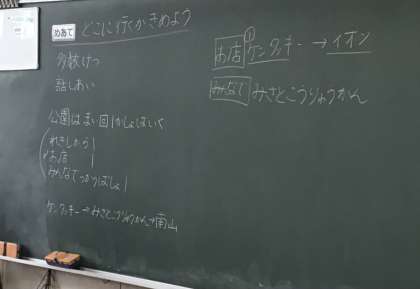 めあて どこに行くかきめよう
多数けつ
話しあい
公園はまい回1かしょはいく
れきしかう1
お店 1
みんなでつかうばしょ1
ケンタッキー→みさとこうりゅうかん→南山
お店 ① ケンタッキー → イオン
みんなで みさとこうりゅうかん